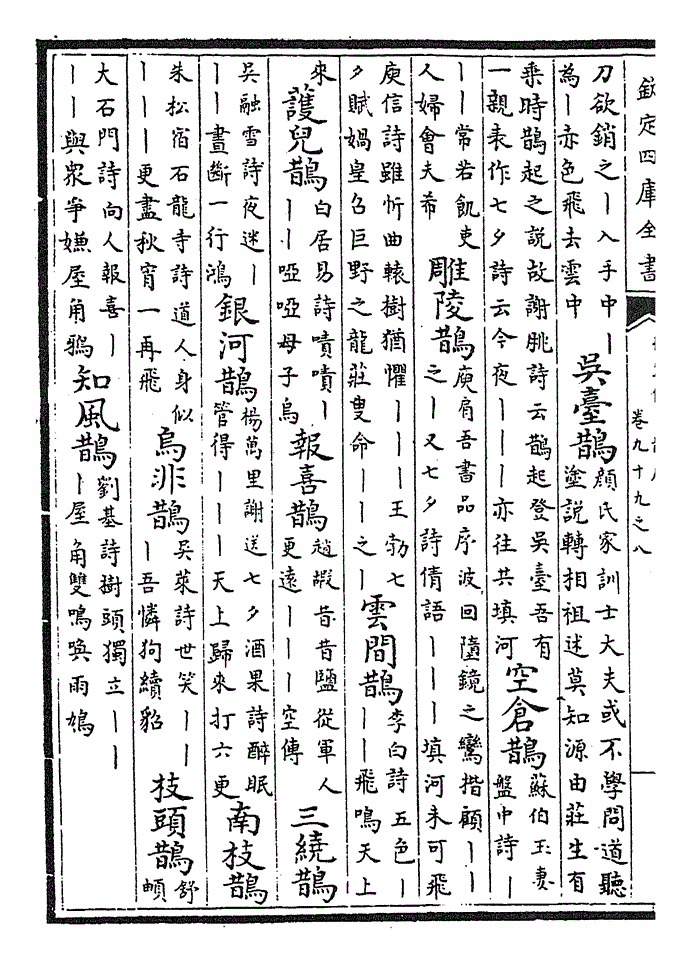 欽定四庫全書
卷九十九之八
刀欲銷之｜入手中｜
為｜亦色飛去雲中
吳臺鵲
顔氏家訓士大夫或不學問道聽
塗説轉相祖述莫知源由莊生有
乘時鵲起之説故謝朓詩云鵲起登吳臺吾有
一親表作七夕詩云今夜｜｜｜亦往共填河
空倉鵲
蘇伯玉妻
盤中詩｜
｜｜常若飢吏
人婦會夫希
雕陵鵲
庾肩吾書品序波回墮鏡之鸞揩顧｜｜
之｜又七夕詩倩語｜｜｜填河未可飛
庾信詩雖忻曲轅樹猶懼｜｜｜王勃七
夕賦媧皇召巨野之龍莊叟命｜｜之｜
雲間鵲
李白詩五色｜
｜｜飛鳴天上
來
䕶兒鵲
白居易詩嘖嘖｜
｜｜啞啞母子烏
報喜鵲
趙嘏昔昔鹽從軍人
更遠｜｜｜空傳
三繞鵲
吳融雪詩夜迷｜
｜｜畫斷一行鴻
銀河鵲
楊萬里謝送七夕酒果詩醉眠
管得｜｜｜天上歸來打六更
南枝鵲
朱松宿石龍寺詩道人身似
｜｜｜更盡秋宵一再飛
烏非鵲
吳萊詩世笑｜｜
｜吾憐狗續貂
枝頭鵲
舒
頔
大石門詩向人報喜｜
｜｜與衆爭嫌屋角鴉
知風鵲
劉基詩樹頭獨立｜｜
｜屋角雙鳴喚雨鳩